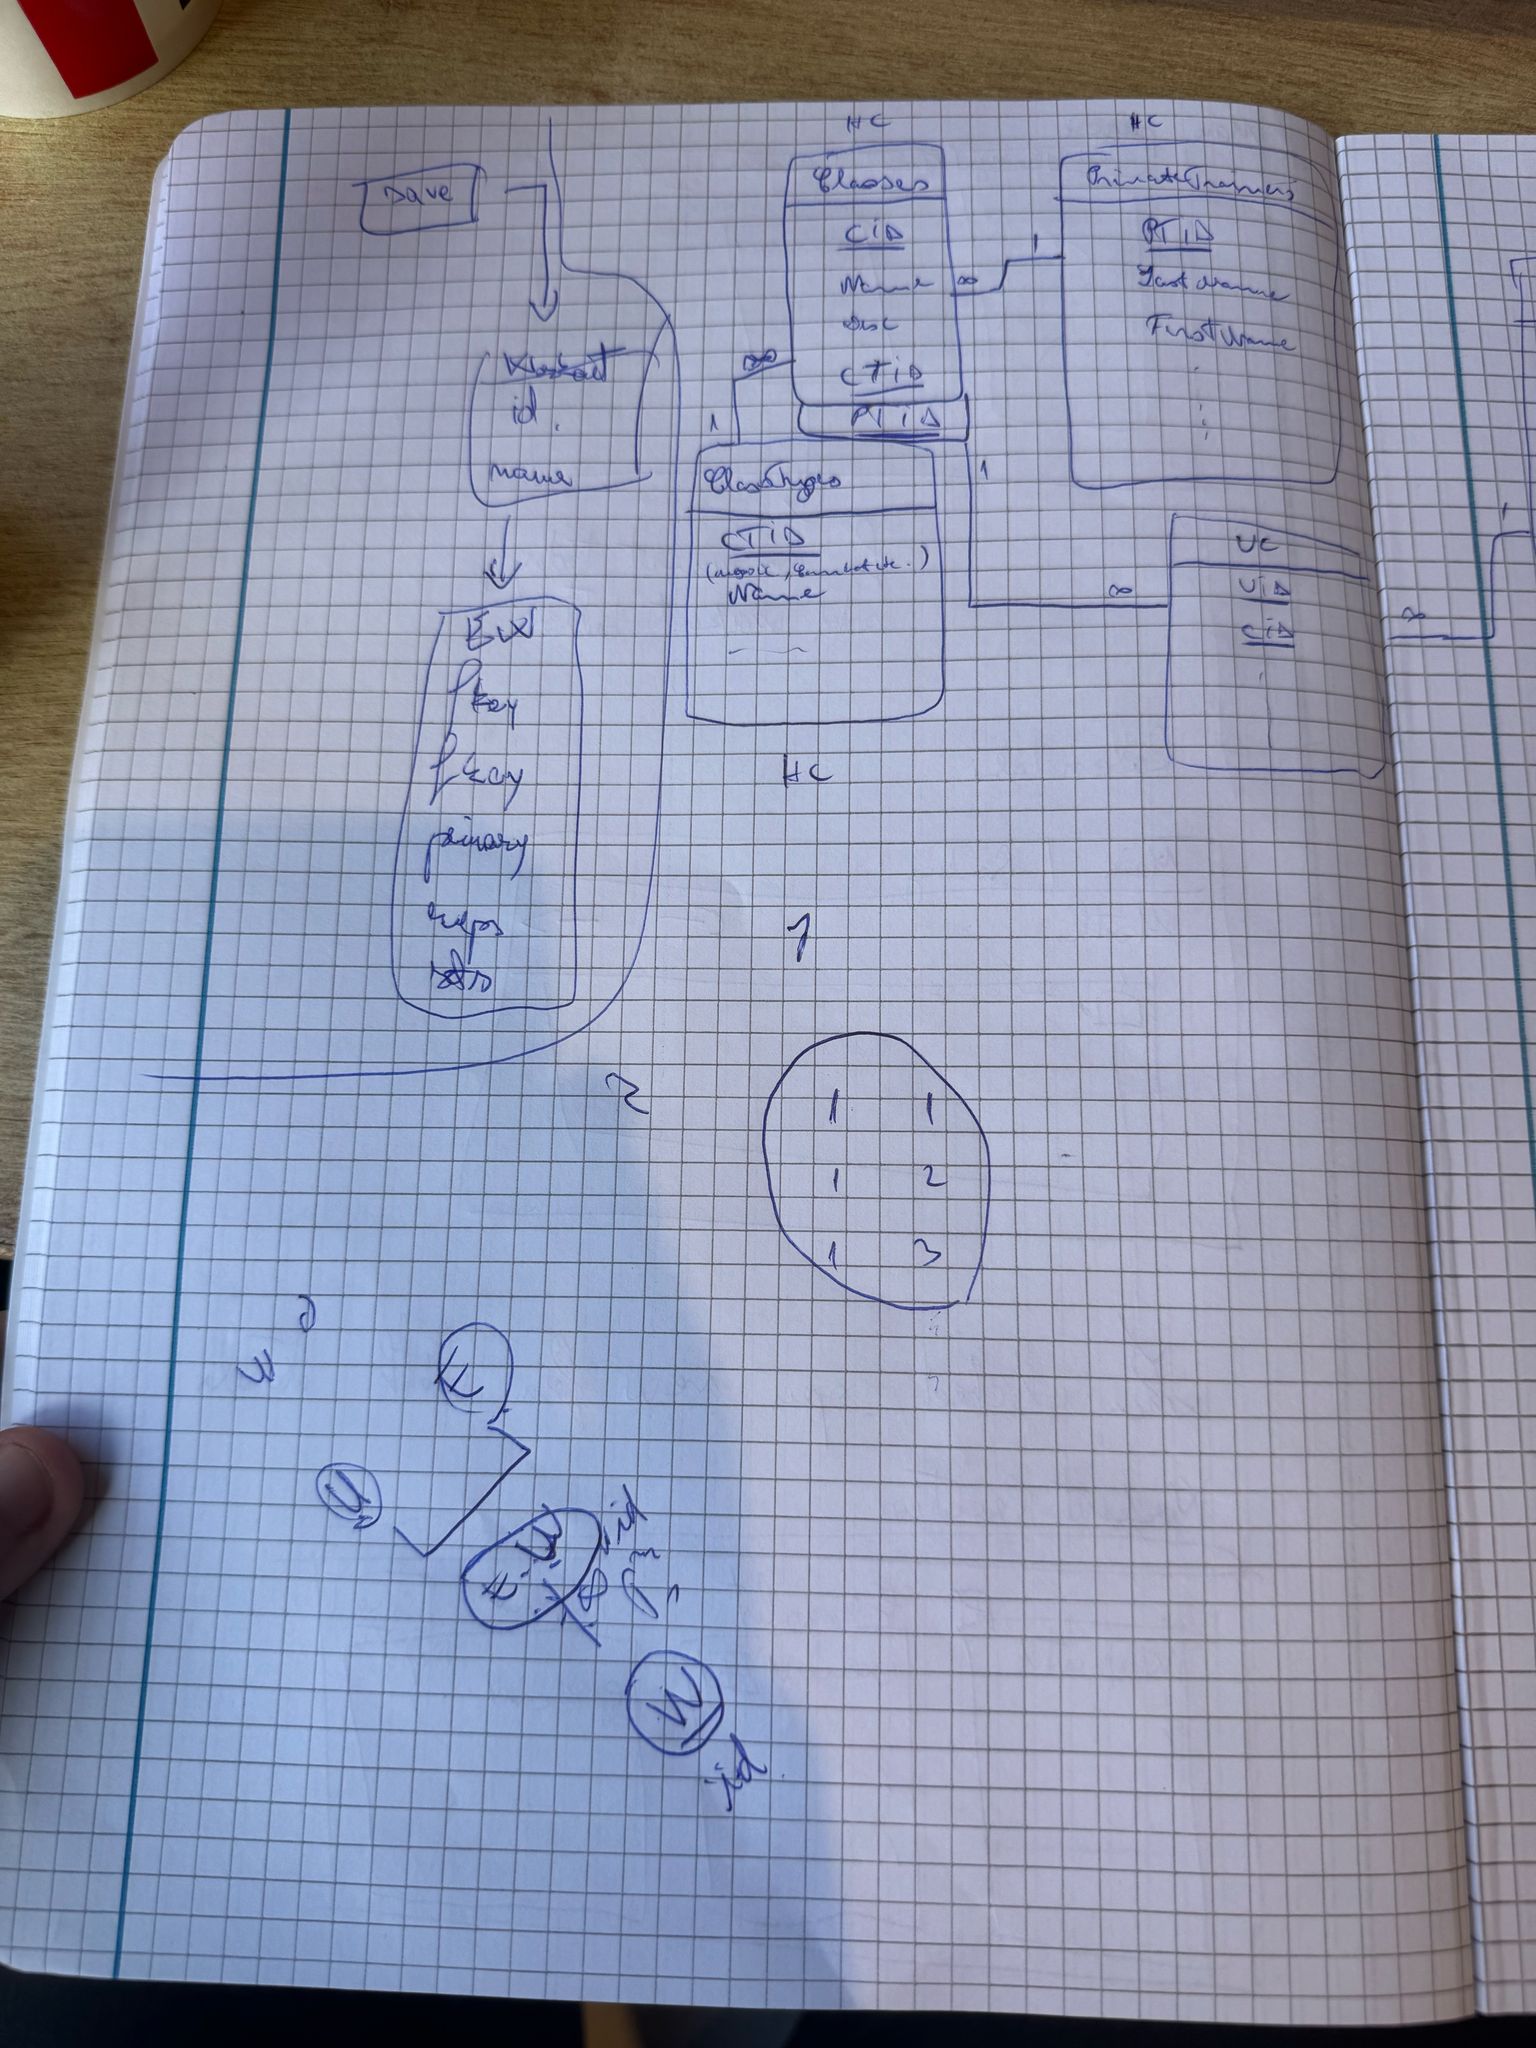 save
Workout
id.
name
EW
fkey
fkey
primary
reps
sets
HC
Classes
CID
Name
Desc
CTID
PTID
∞
1
HC
PrivateTrainers
PTID
LastName
FirstName
∞
1
ClassTypes
CTID
Name
HC
1
∞
UC
UID
CID
∞
1
1
2
1 1
1 2
1 3
3
E
U
E.W
id
W
id